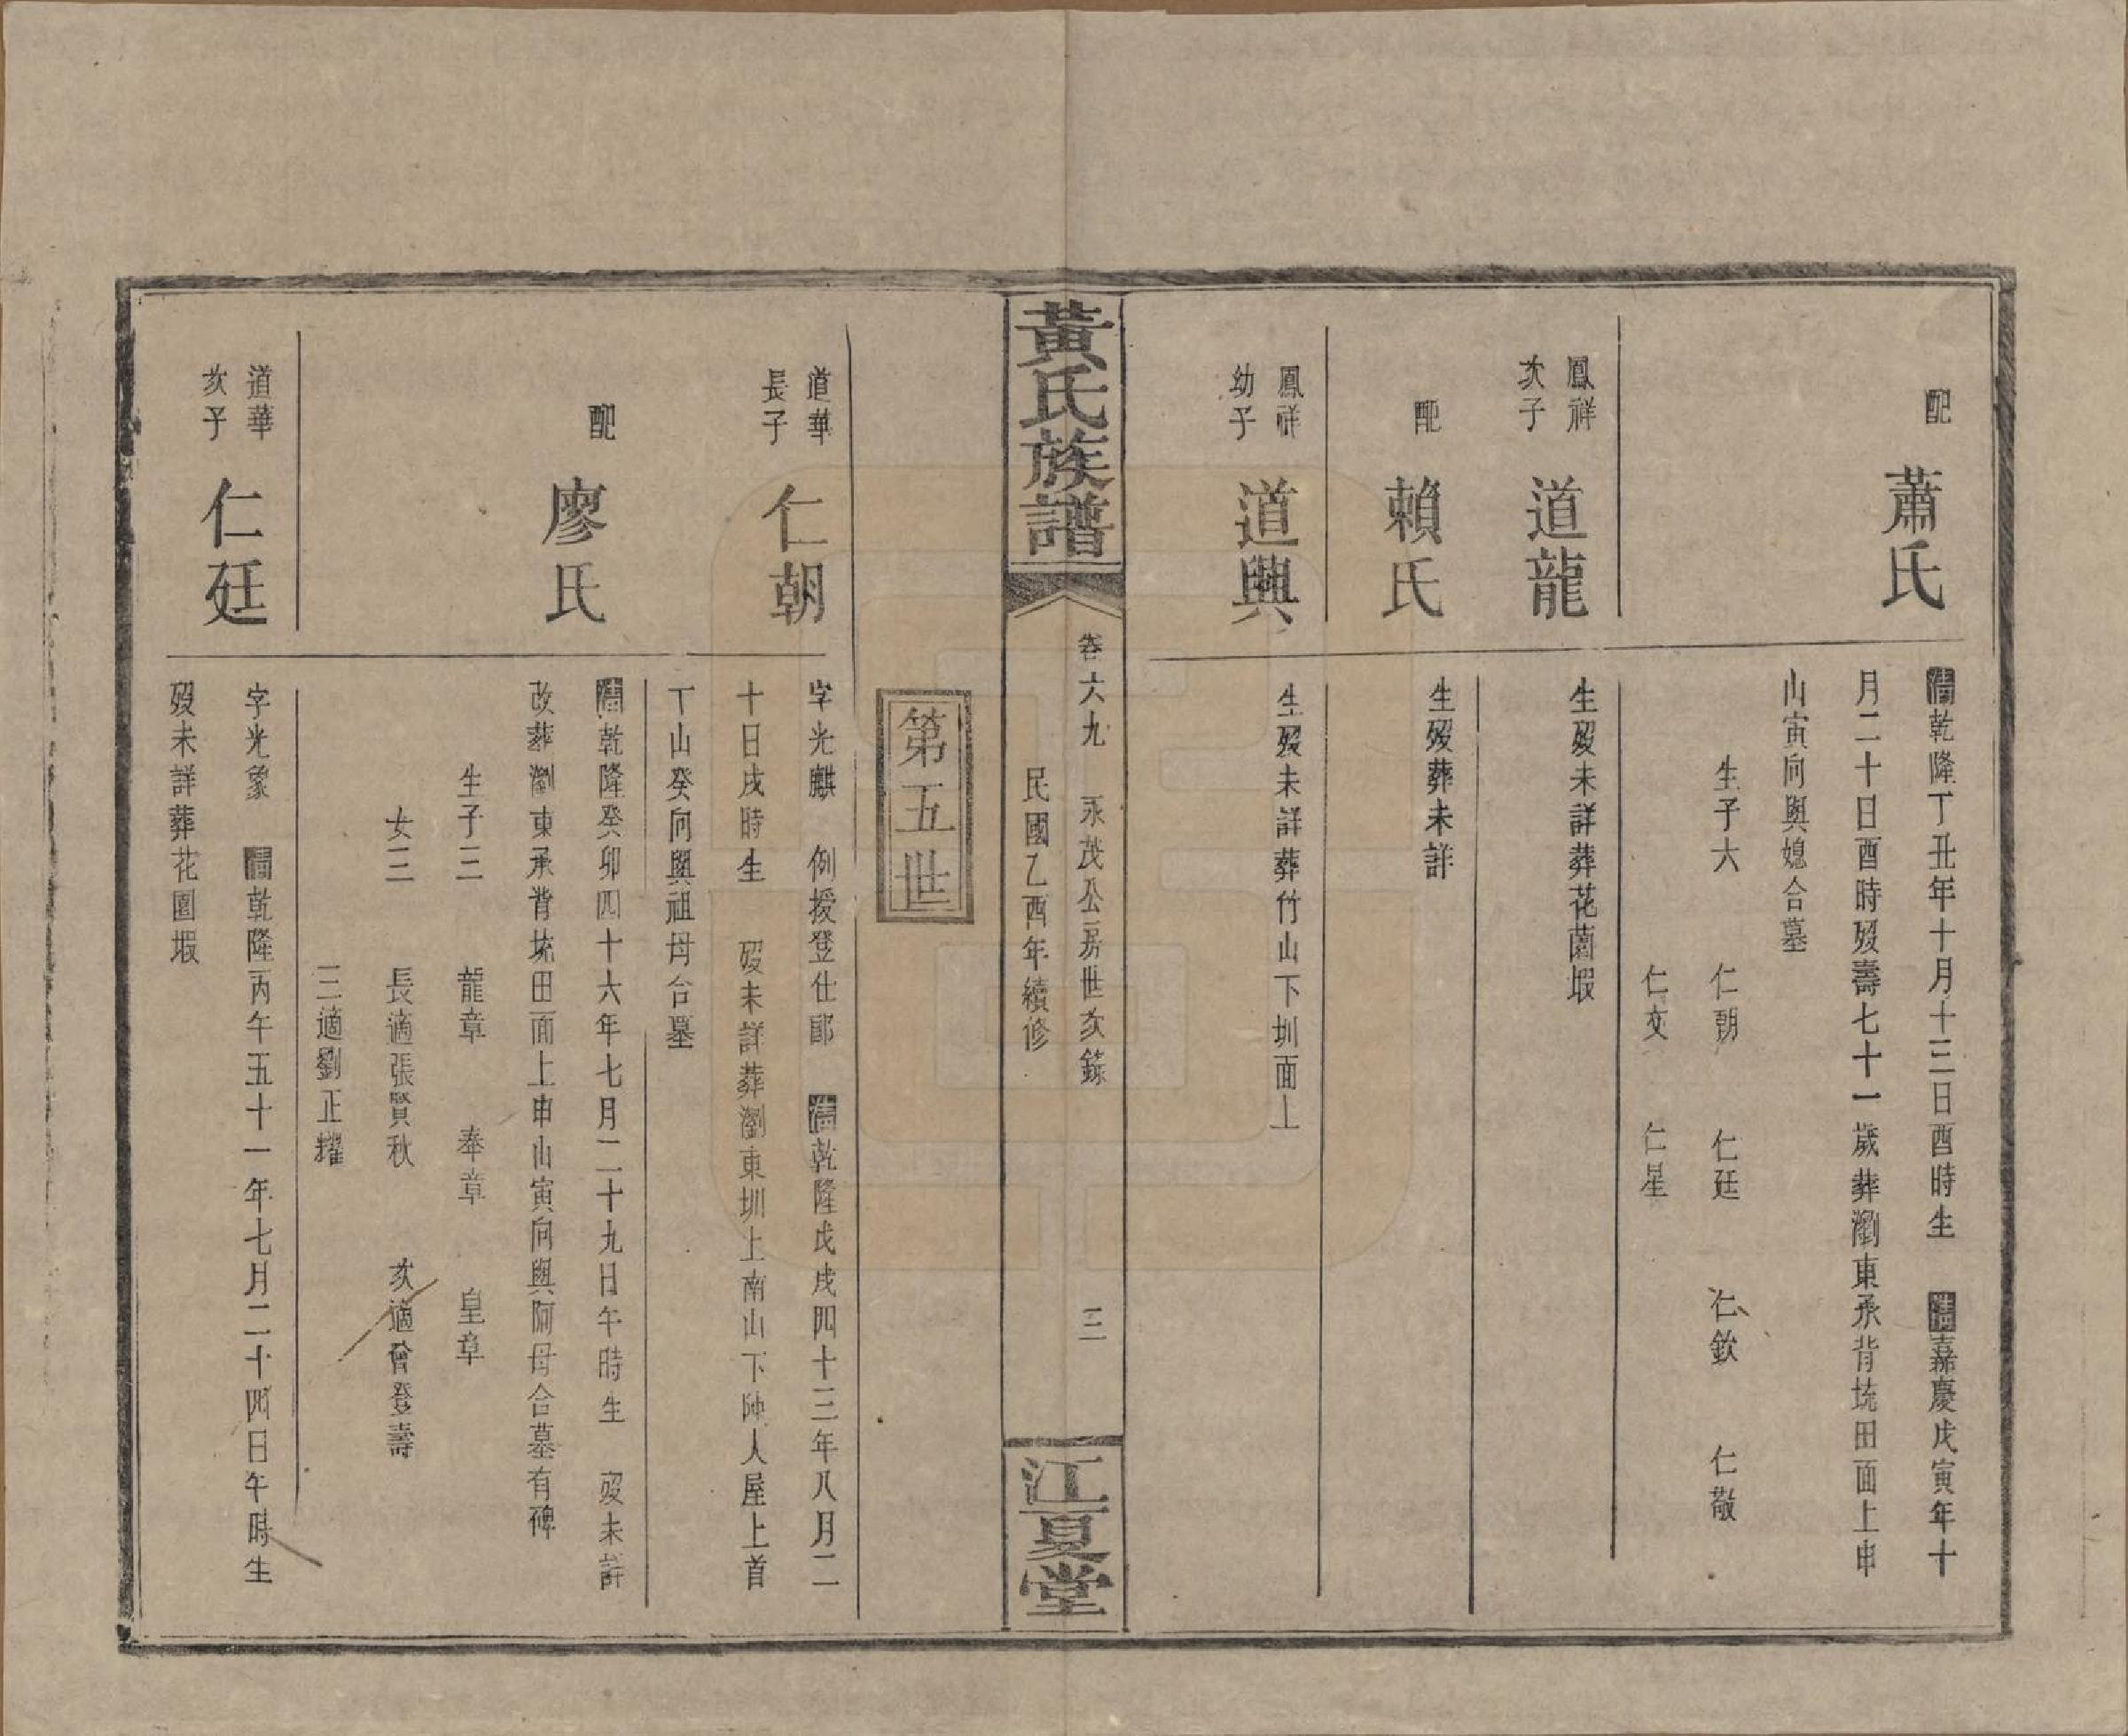 配
蕭氏
清乾隆丁丑年十月十三日酉時生　清嘉慶戊寅年十
月二十日酉時歿壽七十一歲葬瀏東承背㘬田面上申
山寅向與媳合墓
生子六　仁朝　仁廷　仁欽　仁敬
仁文　仁星
鳳祥
次子
道龍
生歿未詳葬花園塅
配
賴氏
生歿葬未詳
鳳祥
幼子
道興
生歿未詳葬竹山下圳面上
黃氏族譜
卷六九　永茂公房世次錄　三
民國乙酉年續修
江夏堂
第五世
道華
長子
仁朝
字光麒　例授登仕郎　清乾隆戊戌四十三年八月二
十日戌時生　歿未詳葬瀏東圳上南山下陳人屋上首
丁山癸向與祖母合墓
配
廖氏
清乾隆癸卯四十六年七月二十九日午時生　歿未詳
改葬瀏東承背㘬田面上申山寅向與阿母合墓有碑
生子三　龍章　奉章　皇章
女三　長適張賢秋　次適曾登壽
三適劉正耀
道華
次子
仁廷
字光象　清乾隆丙午五十一年七月二十四日午時生
歿未詳葬花園塅